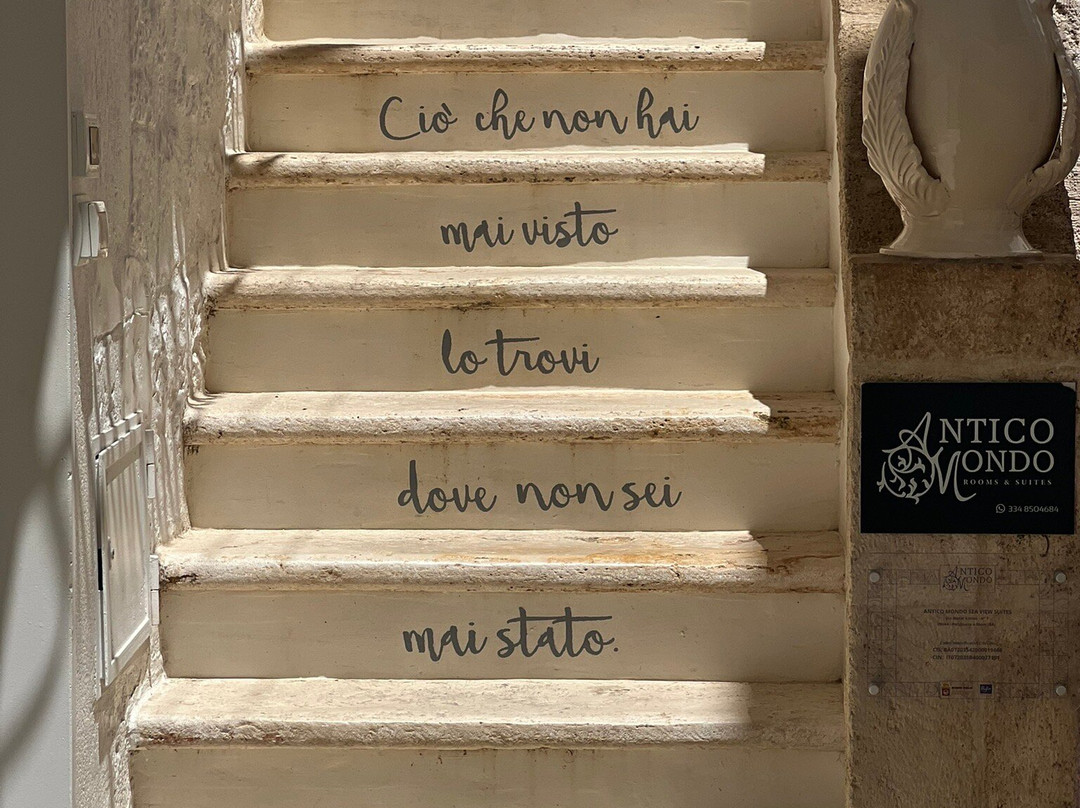 Ciò che non hai
mai visto
lo trovi
dove non sei
mai stato.
ANTICO
MONDO
ROOMS & SUITES
334 8504684
ANTICO
MONDO
ANTICO MONDO SEA VIEW SUITES